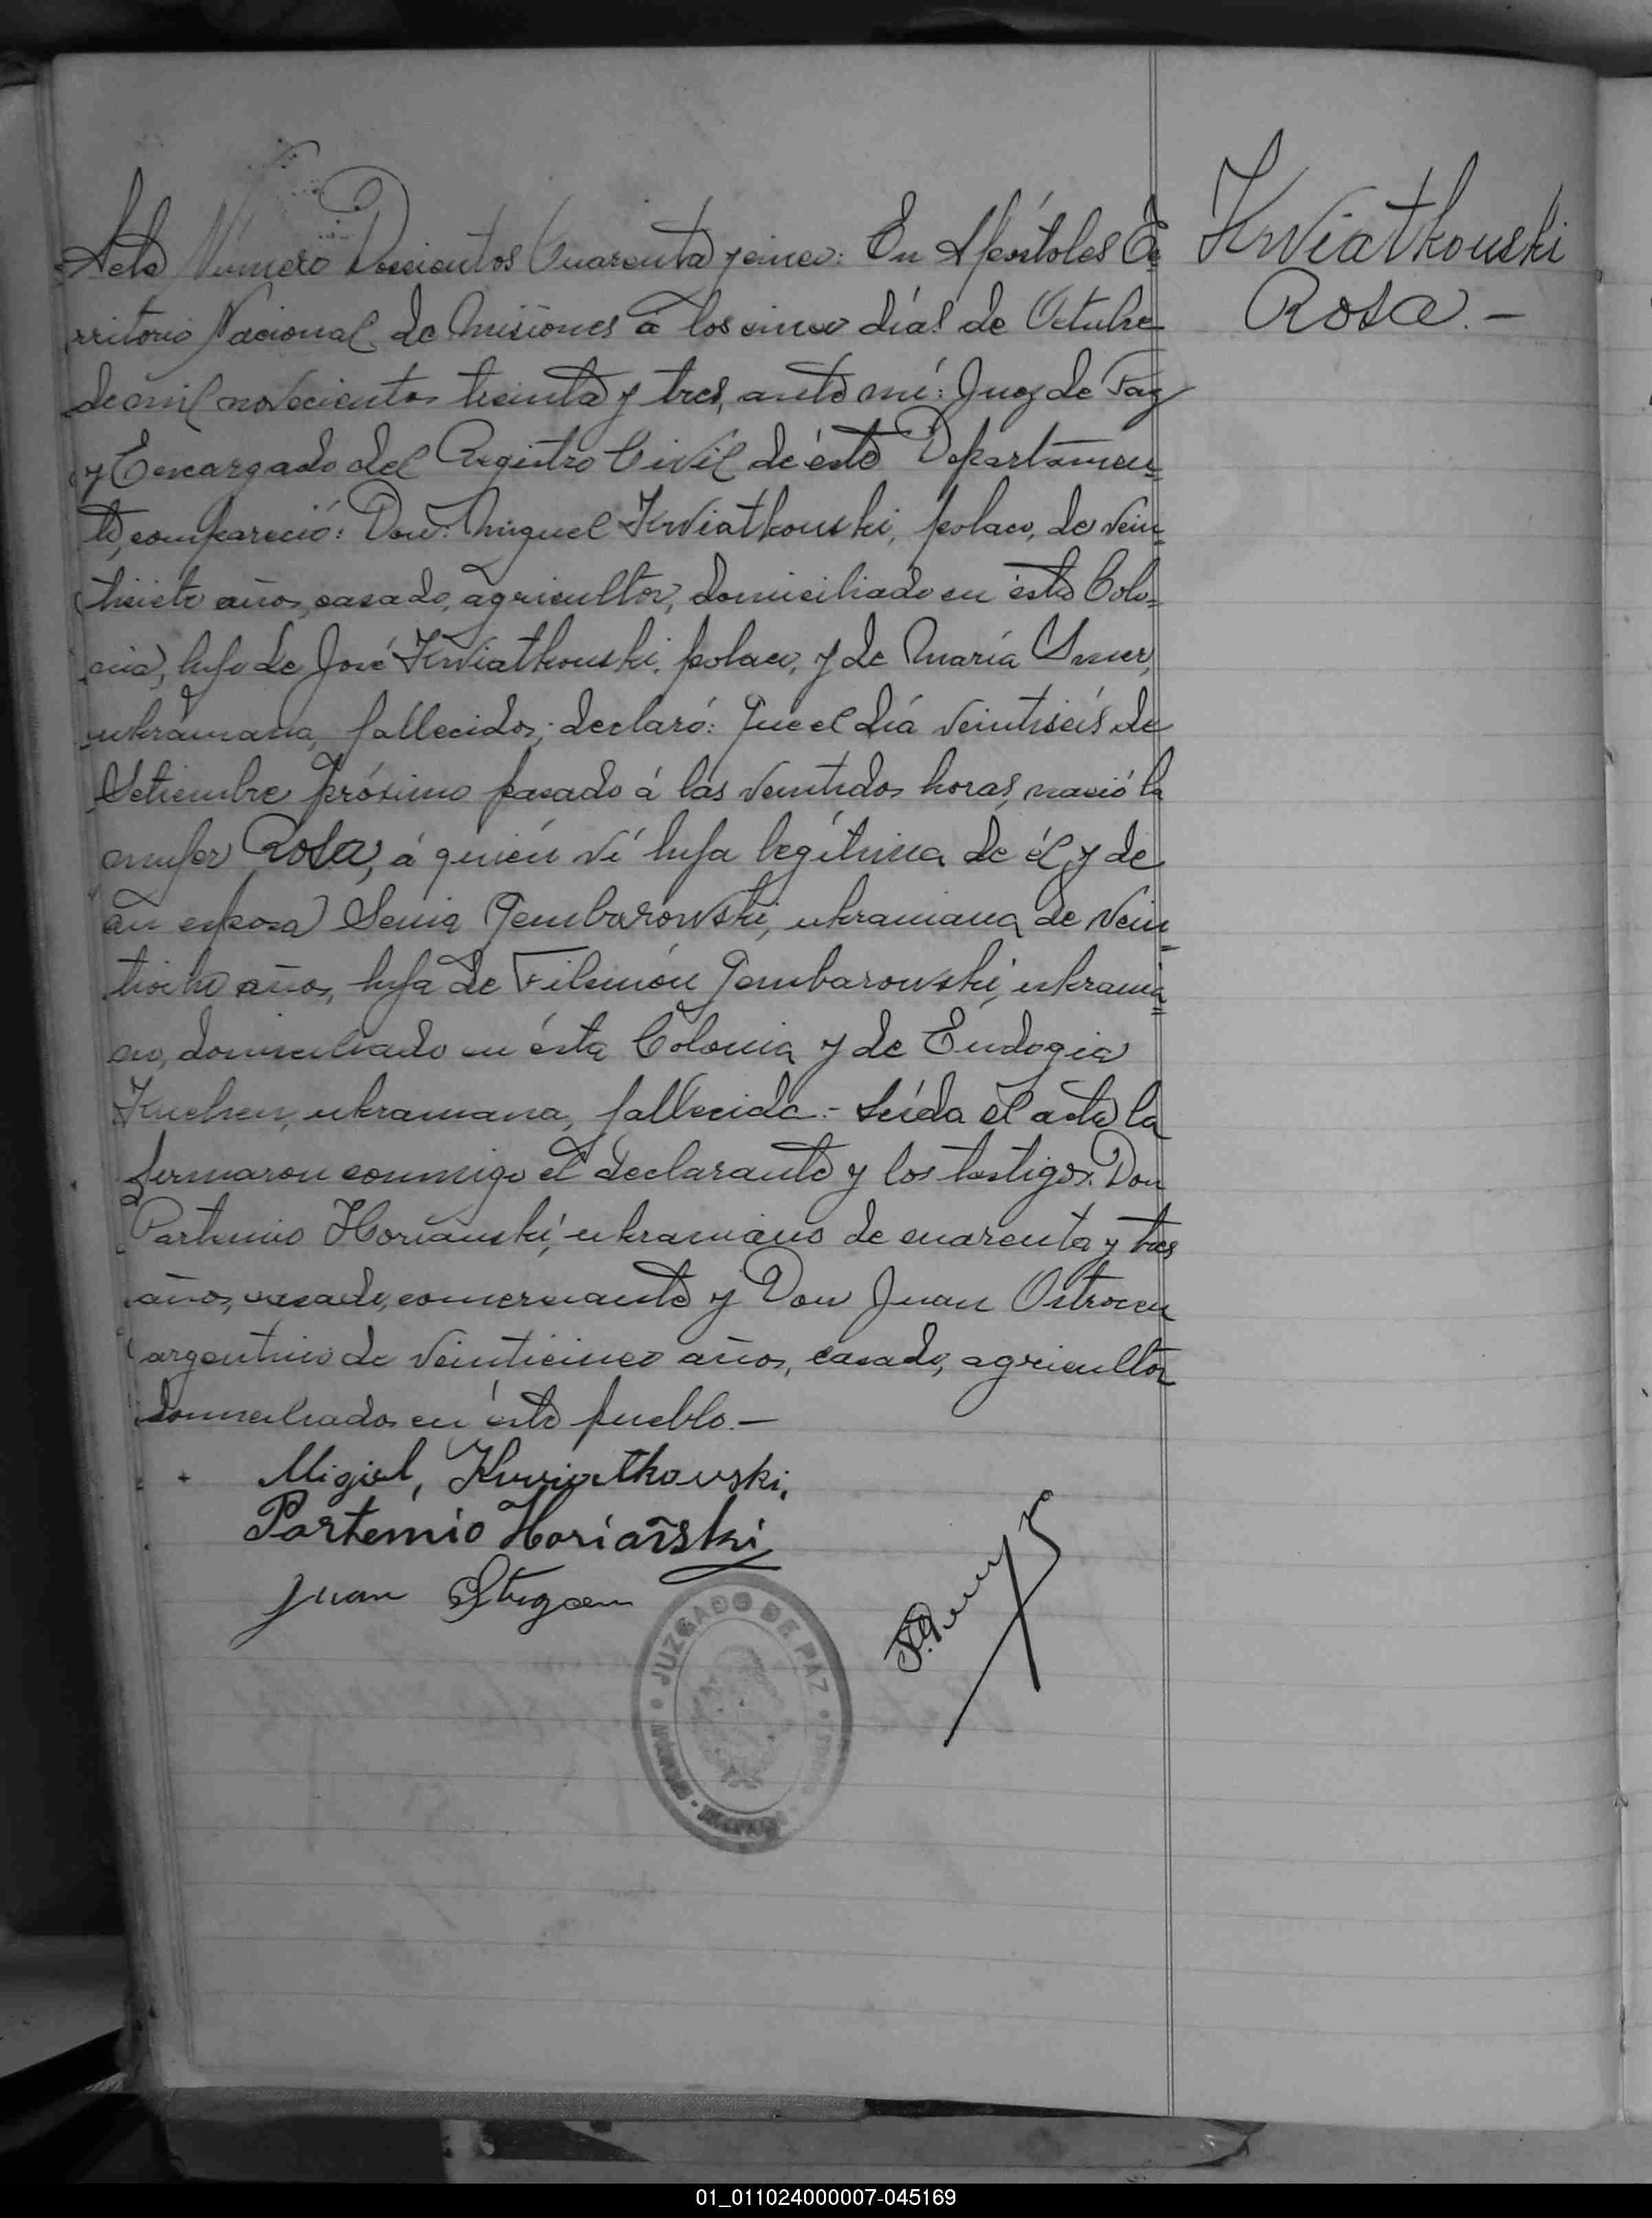 Acta Número Doscientos Cuarenta y cinco: En Apóstoles Te
rritorio Nacional de Misiones á los cinco días de Octubre
de mil novecientos treinta y tres, ante mí: Juez de Paz
y Encargado del Registro Civil de éste Departamen-
to, compareció: Don: Miguel Kwiatkouski, polaco, de vein-
tisiete años, casado, agricultor, domiciliado en ésta Colo-
nia, hijo de José Kwiatkouski, polaco, y de María
ukraniana, fallecidos; declaró: Que el día veintiséis de
Setiembre próximo pasado á las veintidos horas, nació la
mujer Rosa, á quién ví hija legítima de él y de
su esposa Senia Gembarowski, ukraniana de vein-
tiocho años, hija de Filemón Gembarowski, ukrania-
no, domiciliado en ésta Colonia y de Eudogia
ukraniana, fallecida.- Leída el acta la
firmaron conmigo el declarante y los testigos: Don
Partemio Horianski, ukraniano de cuarenta y tres
años, casado, comerciante y Don Juan
argentino de veinticinco años, casado, agricultor
domiciliados en éste pueblo.-
Migiel, Kwiatkowski,
Partemio Horiañski
Juan
JUZGADO DE PAZ
Kwiatkouski
Rosa.-
01_011024000007-045169